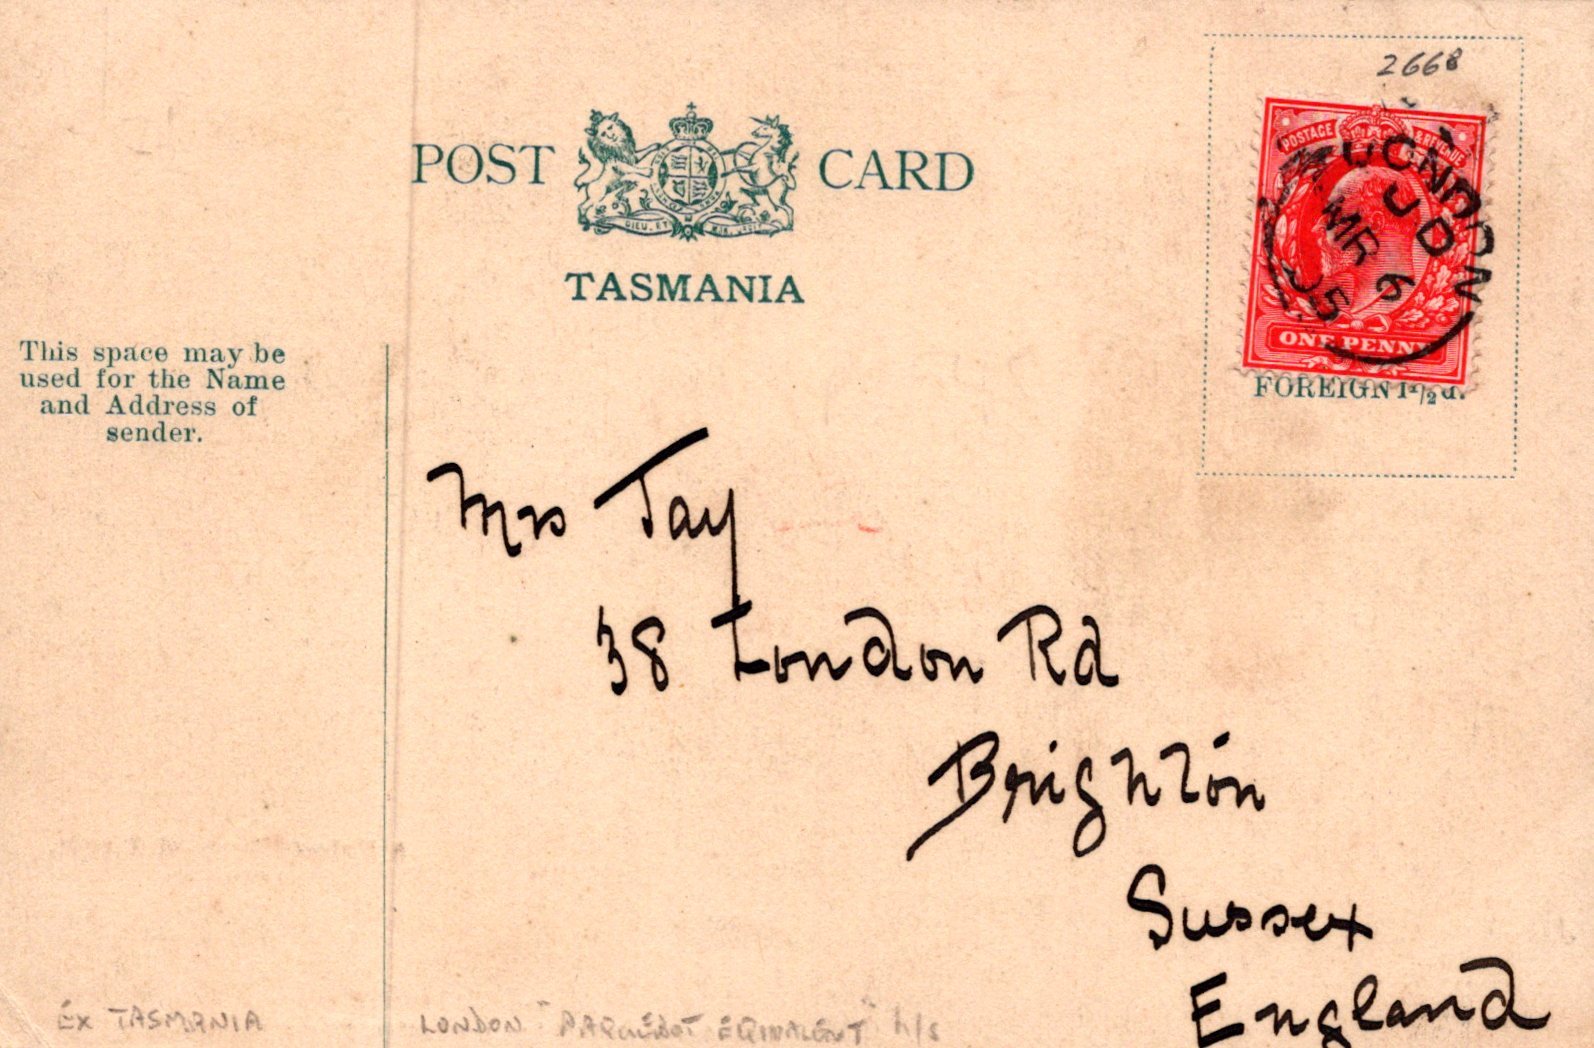 2668
POST CARD
DIEU ET MON DROIT
TASMANIA
POSTAGE & REVENUE
LONDON
J D
MR 6
05
ONE PENNY
FOREIGN 1½d.
This space may be
used for the Name
and Address of
sender.
Mrs Jay
38 London Rd
Brighton
Sussex
England
Ex TASMANIA
LONDON "PAQUEBOT EQIVALENT" h/s